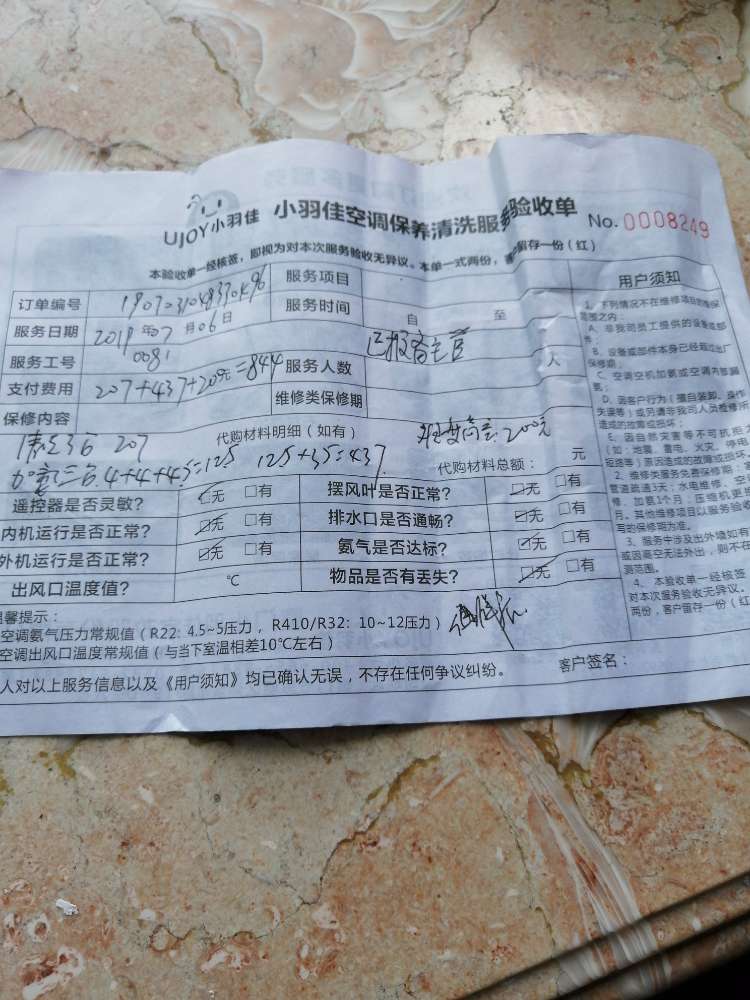 UJOY小羽佳 小羽佳空调保养清洗服务验收单 No. 0008249
本验收单一经核签，即视为对本次服务验收无异议。本单一式两份，客户留存一份（红）
订单编号 服务项目
服务日期 2019年07月06日 服务时间 自 至
服务工号 0081 服务人数 人
支付费用 207+437+200元=844 维修类保修期
保修内容
207 代购材料明细（如有） 200元
4+4+4.5=12.5 12.5×35=437 代购材料总额： 元
遥控器是否灵敏? ☑无 □有 摆风叶是否正常? ☑无 □有
内机运行是否正常? ☑无 □有 排水口是否通畅? ☑无 □有
外机运行是否正常? ☑无 □有 氨气是否达标? ☑无 □有
出风口温度值? ℃ 物品是否有丢失? ☑无 □有
温馨提示：
空调氨气压力常规值（R22: 4.5~5压力，R410/R32: 10~12压力）
空调出风口温度常规值（与当下室温相差10℃左右）
人对以上服务信息以及《用户须知》均已确认无误，不存在任何争议纠纷。 客户签名：
用户须知
1、下列情况不在维修项目的维保
范围之内：
A、非我司员工提供的设备或部
件；
B、设备或部件本身已经超过出厂
保修期；
C、空调空机加氨或空调内部漏
氨；
D、因客户行为（擅自装卸、操作
失误等）或另请非我司人员维修所
造成的故障或损坏；
E、因自然灾害等不可抗拒
（如：地震、雷电、火灾、
短路等）原因造成的故障或损坏。
2、维修类服务免费保修期：
管道疏通3天；水电维修、空
修、加氨1个月；压缩机更
月。其他维修项目以服务验收
写的保修期为准。
3、服务中涉及出外墙如有
或因高空无法外出，则不在
测范围。
4、本验收单一经核签
对本次服务验收无异议。
两份，客户留存一份（红